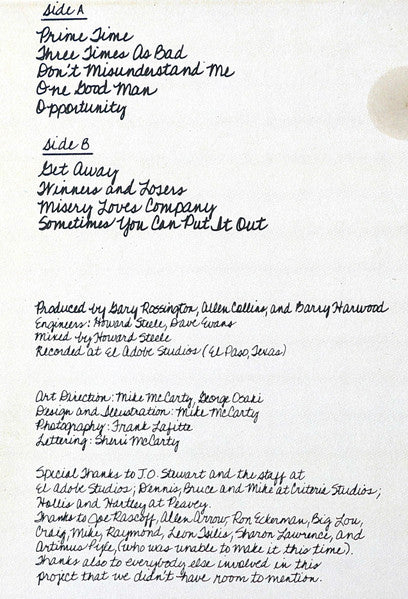 Side A
Prime Time
Three Times As Bad
Don't Misunderstand Me
One Good Man
Opportunity
Side B
Get Away
Winners and Losers
Misery Loves Company
Sometimes You Can Put It Out
Produced by Gary Rossington, Allen Collins, and Barry Harwood
Engineers: Howard Steele, Dave Evans
Mixed by Howard Steele
Recorded at El Adobe Studios (El Paso, Texas)
Art Direction: Mike McCarty, George Osaki
Design and Illustration: Mike McCarty
Photography: Frank Lafitte
Lettering: Sherri McCarty
Special Thanks to J.O. Stewart and the staff at
El Adobe Studios; Dennis, Bruce and Mike at Criteria Studios;
Hollis and Hartley at Peavey.
Thanks to Joe Rascoff, Allen Arrow, Ron Eckerman, Big Lou,
Craig, Mike, Raymond, Leon Tsilis, Sharon Lawrence, and
Artimus Pyle, (who was unable to make it this time).
Thanks also to everybody else involved in this
project that we didn't have room to mention.